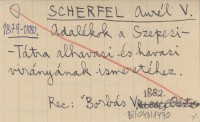 SCHERFEL Aurél V.
1879-1880. Adalékok a Szepesi-
-Tátra alhavasi és havasi
virányának ismeretéhez.
1882.
Rec: "Borbás V.